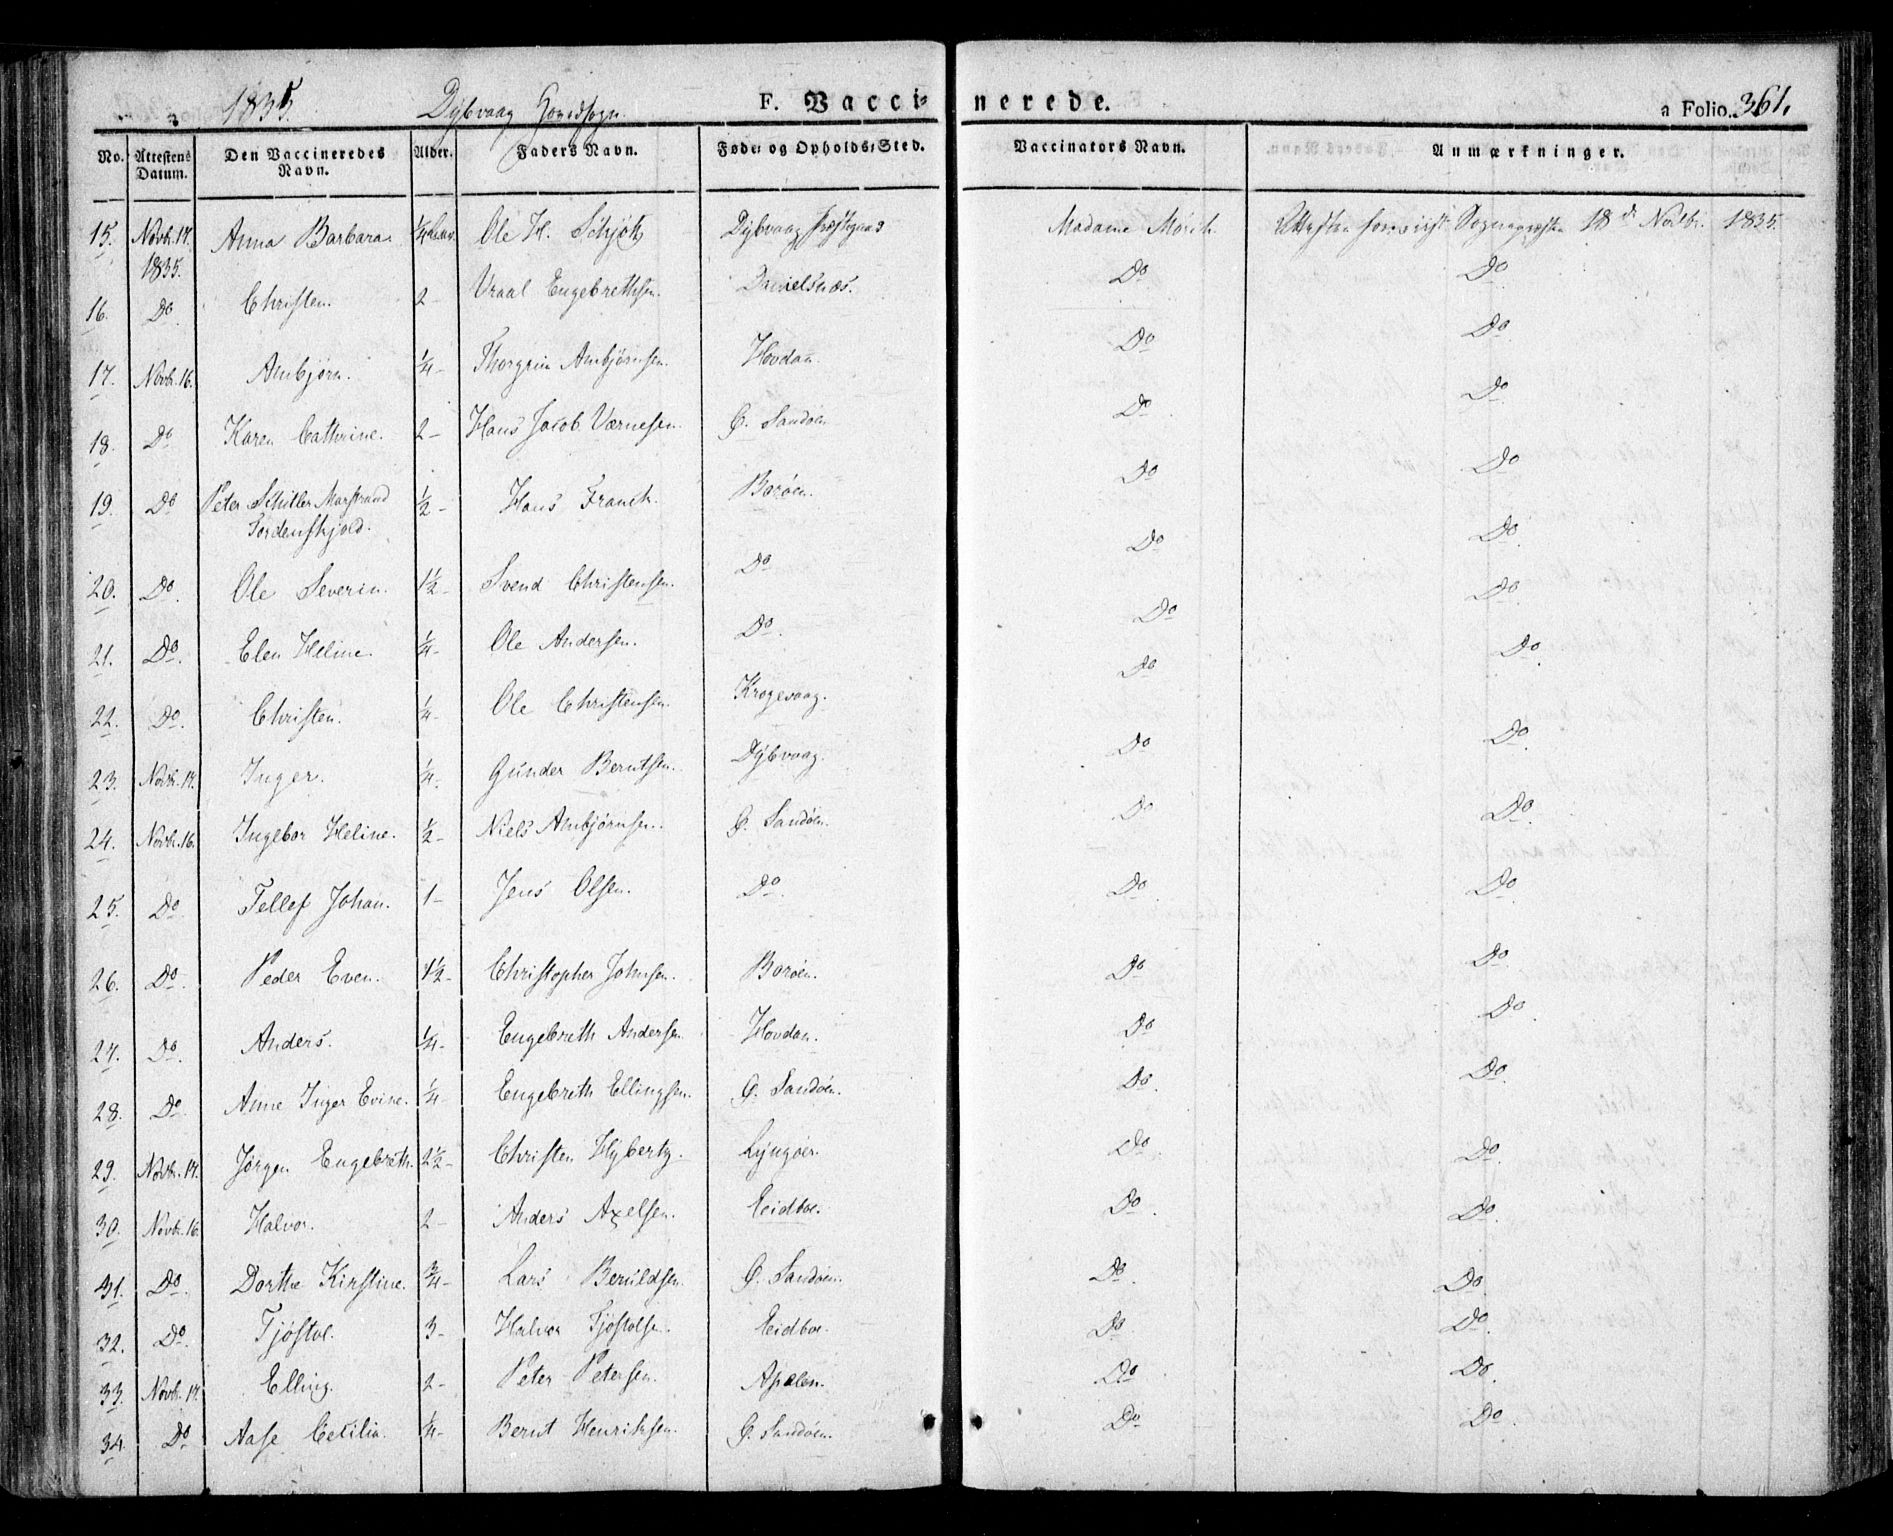 1835. Dybvaag Hovedsogn. F. Vaccinerede. a Folio. 361.
No. Attestens Datum. Den Vaccineredes Navn. Alder. Faders Navn. Føde- og Opholds-Sted. Vaccinators Navn. Anmærkninger.
15. Novbr. 17. 1835. Anna Barbara. 1/4 Ole H. Schjøtz Dybvaag Madame Mørch. 18de Novbr. 1835.
16. Do Christen. 2 - Vraal Engebrethsen. Danielsnæs. Do Do
17. Novbr. 16. Ambjørn. 1/4 - Thorgrim Ambjørnsen. Hovdan. Do Do
18. Do Karen Cathrine. 2 - Hans Jacob Værnesen. G. Sandøen Do Do
19. Do Peter Schitler Marstrand Tordenskjold. 1/2 - Hans Franck. Borøen. Do Do
20. Do Ole Severin. 1 1/2 - Svend Christensen. Do Do Do
21. Do Elen Heline. 1/4 - Ole Andersen. Do Do Do
22. Do Christen. 1/4 - Ole Christensen. Krogevaag. Do Do
23. Novbr. 17. Inger. 1/4 - Gunder Berntsen. Dybvaag. Do Do
24. Novbr. 16. Ingebor Heline. 1/2 - Niels Ambjørnsen. G. Sandøen. Do Do
25. Do Tellef Johan. 1 - Jens Olsen. Do Do Do
26. Do Peder Even. 1 1/2 - Christopher Johnsen. Borøen. Do Do
27. Do Anders. 1/4 - Engebreth Andersen. Hovdan. Do Do
28. Do Anne Inger Evine. 1/4 - Engebreth Ellingsen. G. Sandøen. Do Do
29. Novbr. 17. Jørgen Engebreth. 2 1/2 - Christen Hybertz. Lyngøer. Do Do
30. Novbr. 16. Halvor. 2 - Anders Axelsen. Eidboe. Do Do
31. Do Dorthe Kirstine. 3/4 - Lars Beruldsen. G. Sandøen. Do Do
32. Do Tjøstol. 3 - Halvor Tjøstolsen. Eidboe. Do Do
33. Novbr. 17. Elling. 2 - Peter Petersen. Askeløen. Do Do
34. Do Aase Cecilia. 1/4 - Bernt Henriksen. G. Sandøen. Do Do